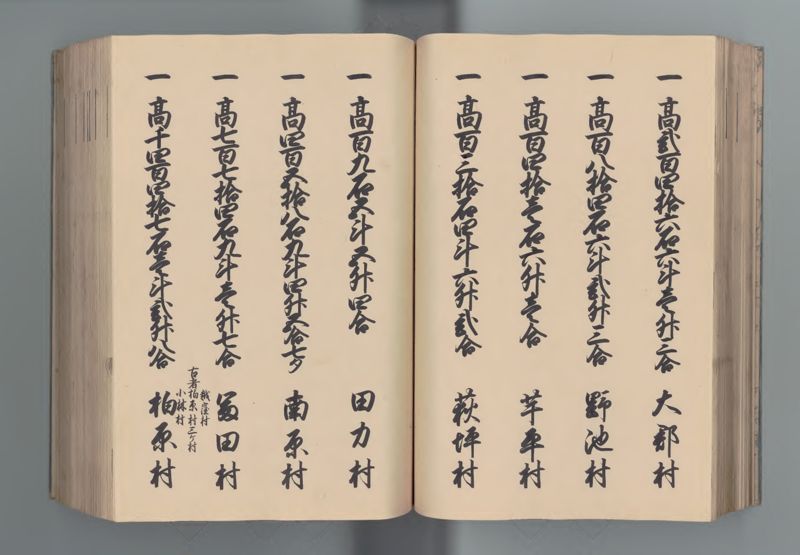 一 高弐百四拾六石六斗壱升三合 大郡村
一 高百八拾四石六斗弐升三合 野池村
一 高百四拾壱石六升壱合 芋平村
一 高百三拾石四斗六升弐合 萩坪村
一 高百九石五斗五升四合 田力村
一 高四百五拾八石九斗四升五合七夕 南原村
一 高七百七拾四石九斗壱升七合 冨田村
一 高千四百四拾七石壱斗弐升八合 柏原村
古者柏原村三ケ村
小林村